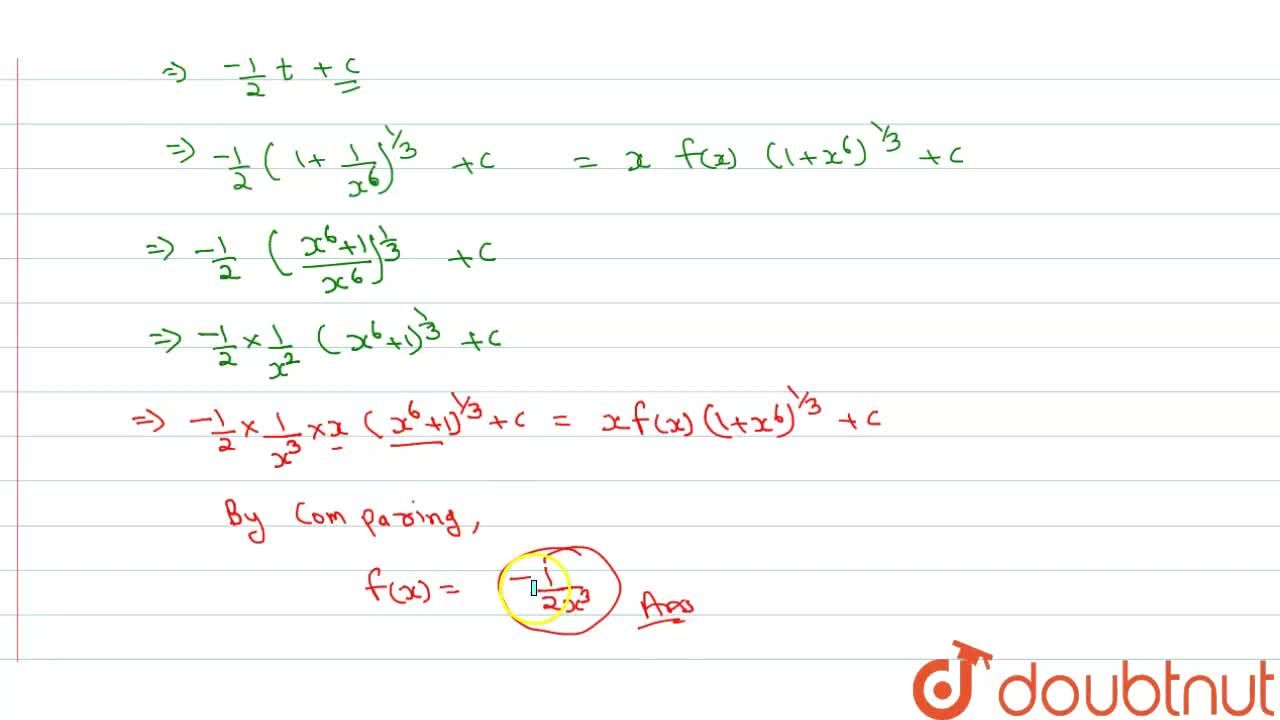 => -1/2 t + c
=> -1/2 (1 + 1/x⁶)^1/3 + c = x f(x) (1+x⁶)^1/3 + c
=> -1/2 (x⁶+1/x⁶)^1/3 + c
=> -1/2 × 1/x² (x⁶+1)^1/3 + c
=> -1/2 × 1/x³ × x (x⁶+1)^1/3 + c = x f(x) (1+x⁶)^1/3 + c
By Comparing,
f(x) = -1/2x³ Ans
doubtnut